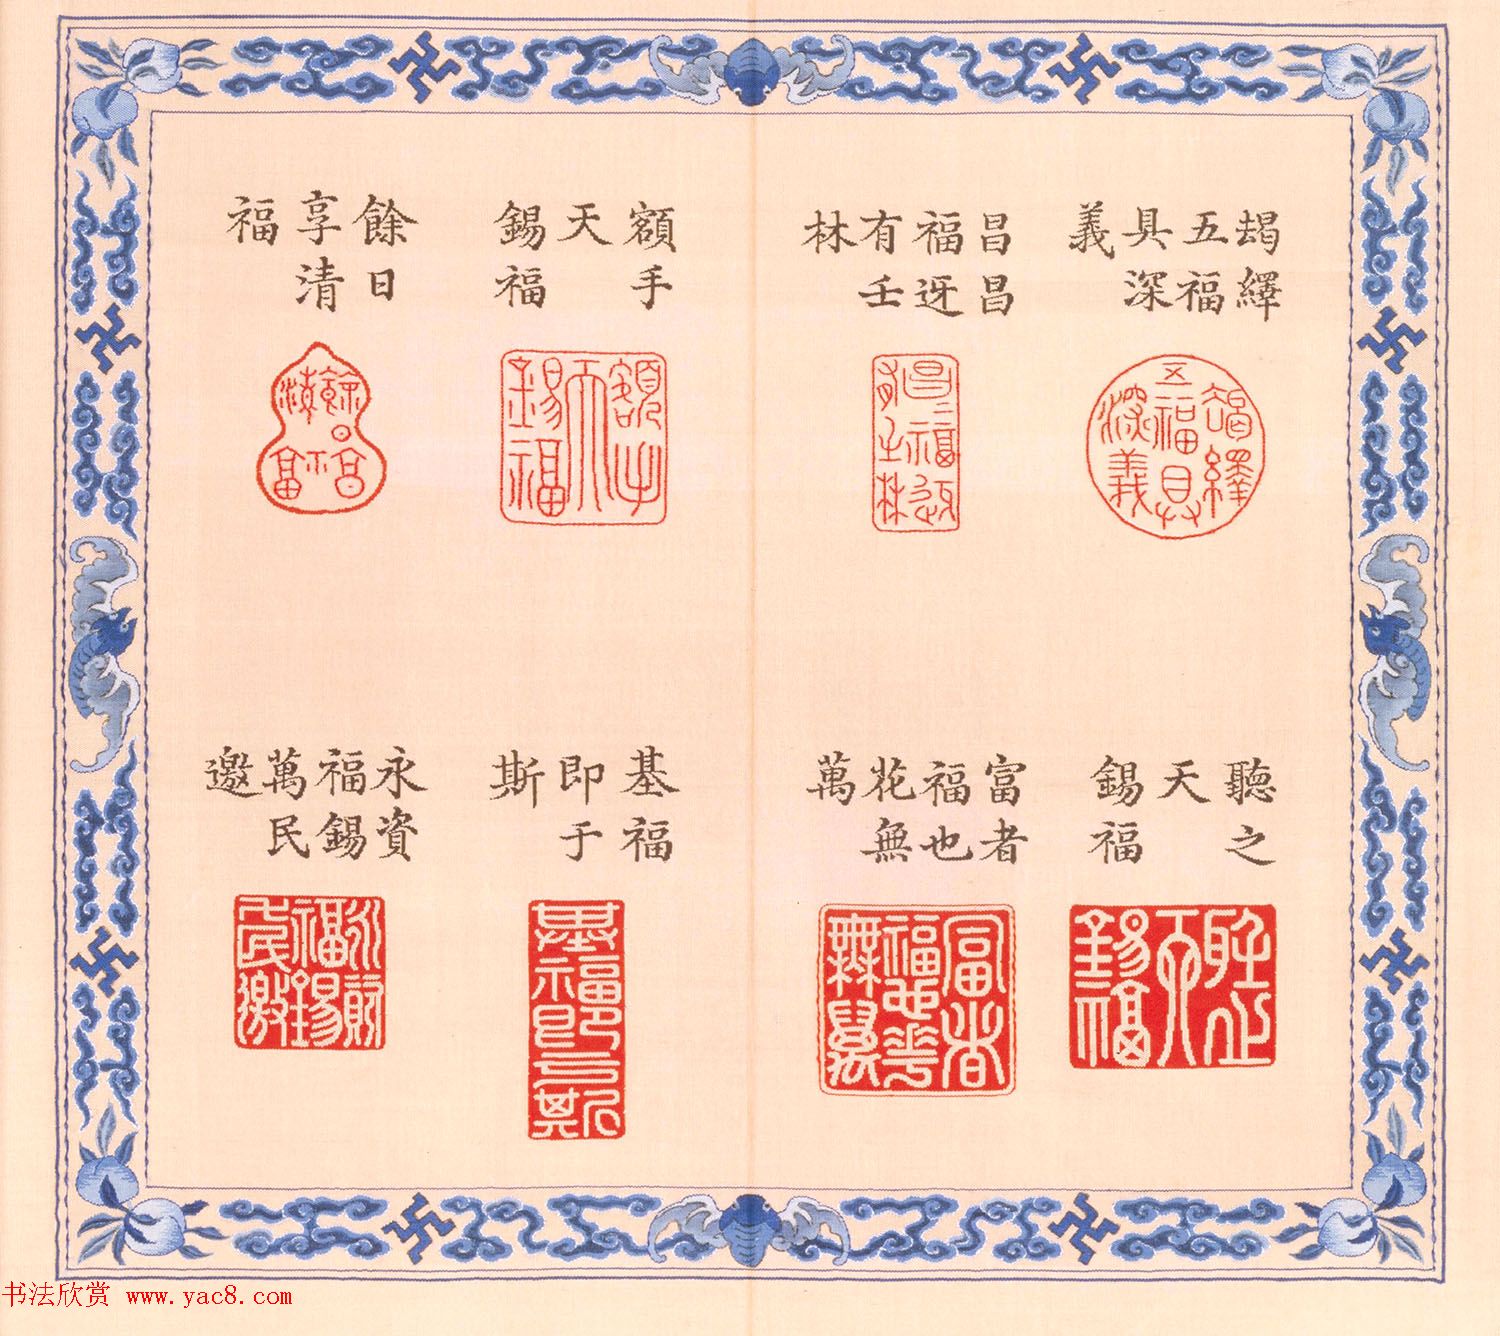 竭繹
五福
具深
義
昌昌
福迓
有壬
林
額手
天
錫福
餘日
享清
福
聽之
天
錫福
富者
福也
花無
萬
基福
即于
斯
永資
福錫
萬民
邀
书法欣赏 www.yac8.com